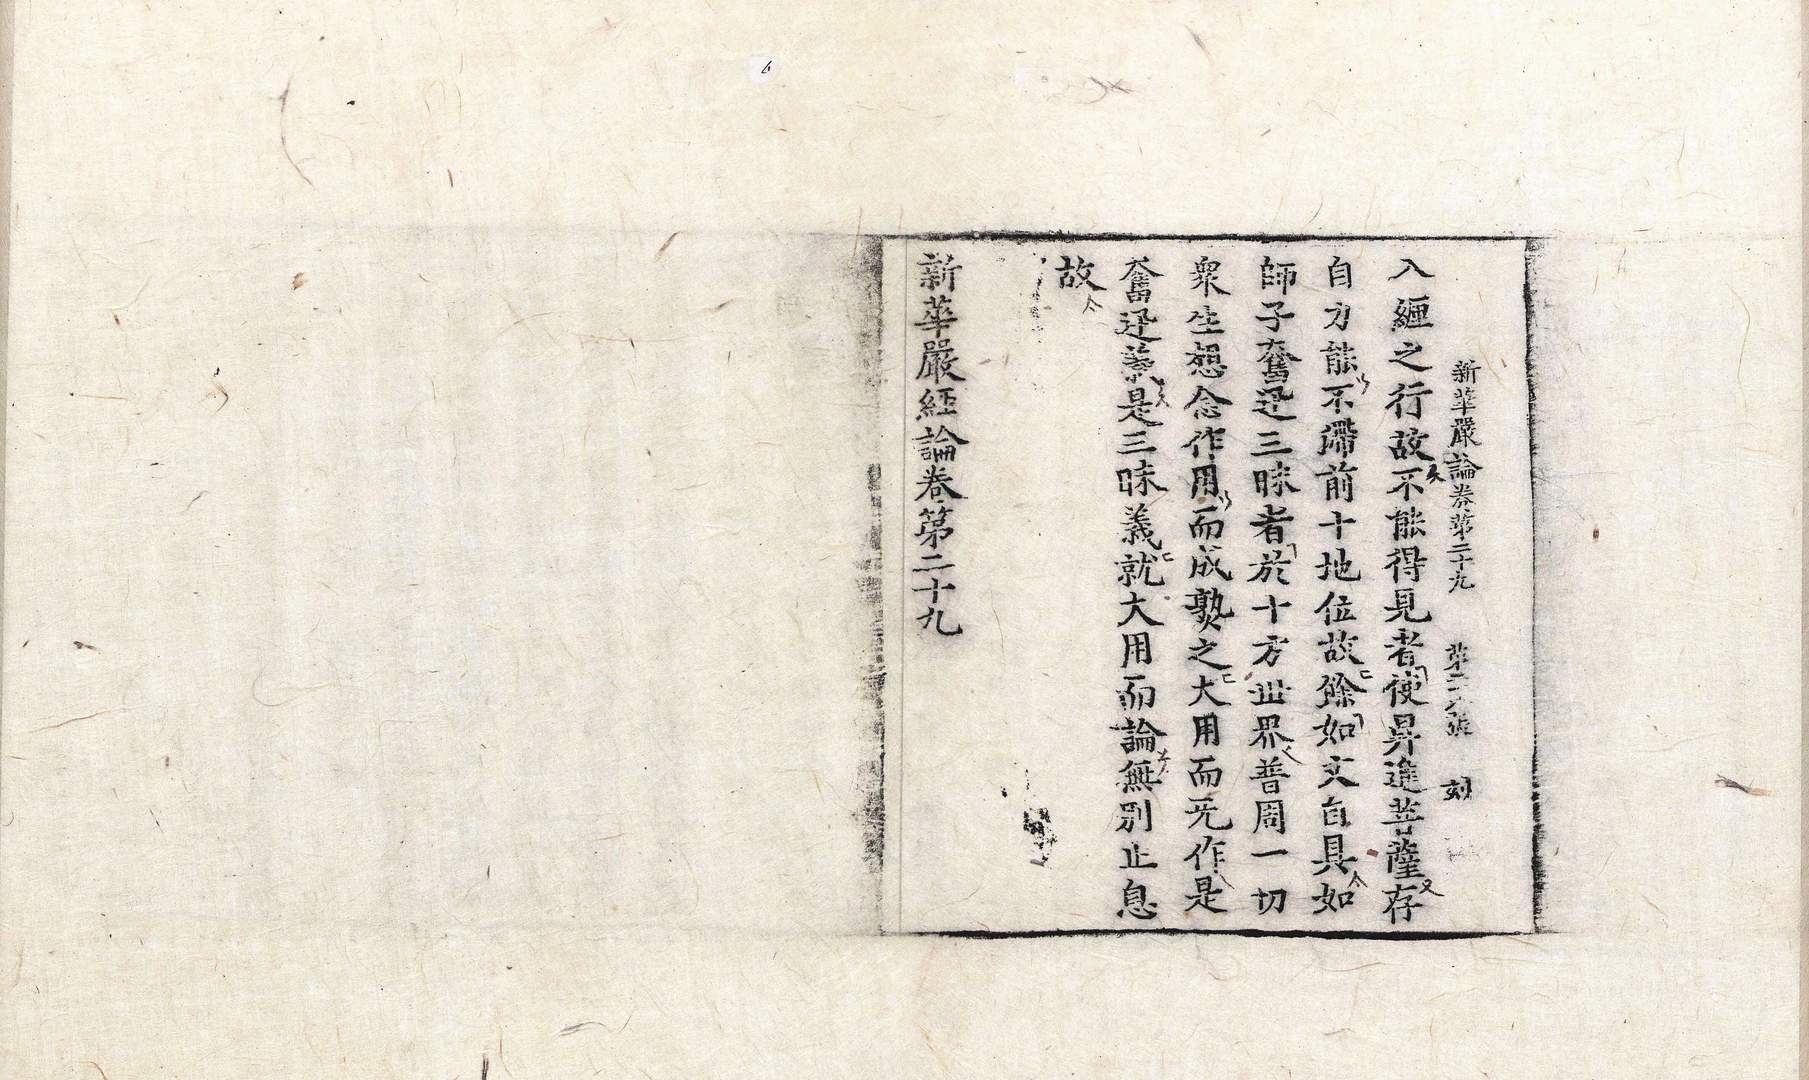 6
新華嚴論卷第二十九 第 張 刻
入纏之行故不能得見者使昇進菩薩存
自力能不滯前十地位故餘如文自具如
師子奮迅三昧者於十方世界普周一切
衆生想念作用而成熟之大用而无作是
奮迅義是三昧義就大用而論無別止息
故
新華嚴經論卷第二十九